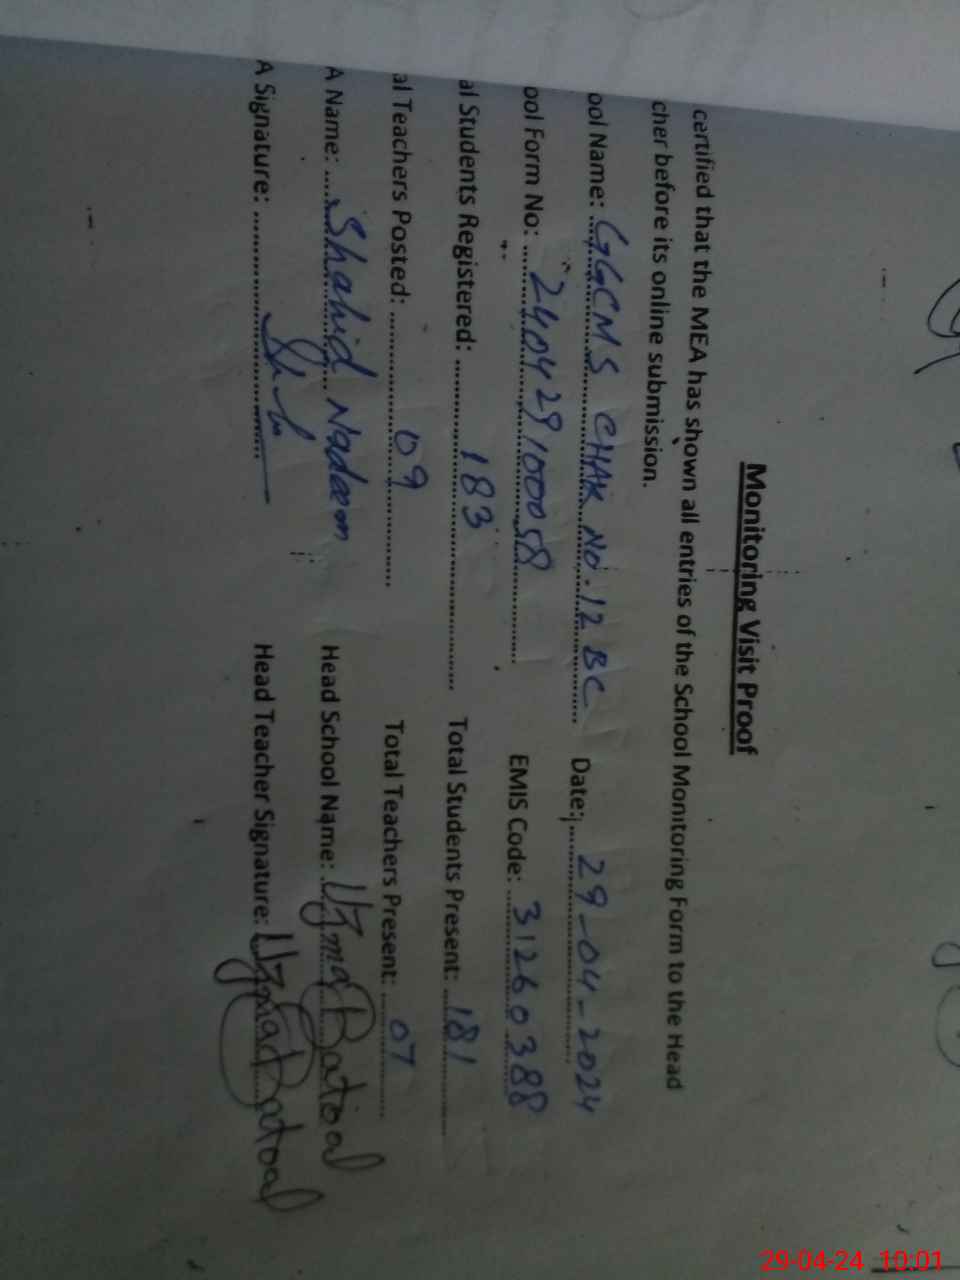 Monitoring Visit Proof
certified that the MEA has shown all entries of the School Monitoring Form to the Head
cher before its online submission.
ool Name: GGCMS CHAK No.12 BC Date: 29-04-2024
ool Form No: 2404291000058 EMIS Code: 31260388
al Students Registered: 183 Total Students Present: 181
al Teachers Posted: 09 Total Teachers Present: 07
A Name: Shahid Nadeem Head School Name: Uzma Batool
A Signature: Head Teacher Signature: Uzma Batool
29-04-24 10:01